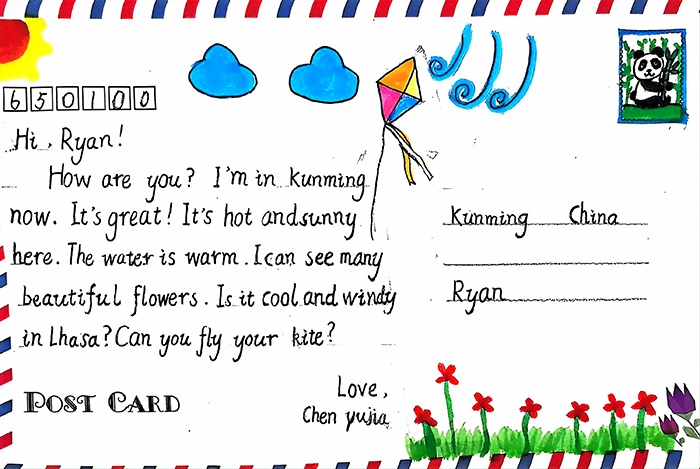 650100
Hi, Ryan!
How are you? I'm in Kunming
now. It's great! It's hot and sunny
here. The water is warm. I can see many
beautiful flowers. Is it cool and windy
in Lhasa? Can you fly your kite?
Love,
Chen yujia
POST CARD
Kunming China
Ryan